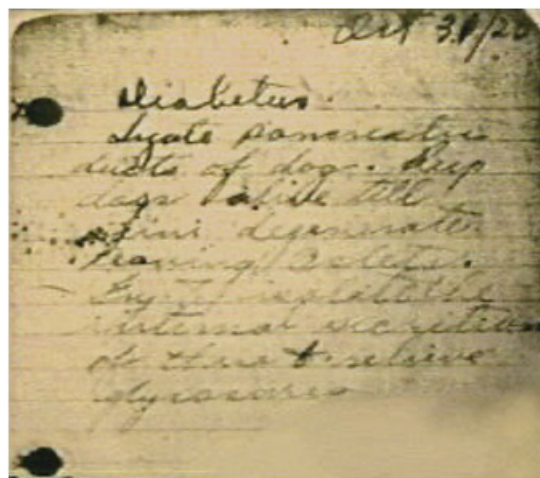 Oct 31/20
Diabetus.
Ligate pancreatic
ducts of dogs. Keep
dogs alive till
acini degenerate
leaving Islets.
Try to isolate the
internal secretion
of these to relieve
glycosurea